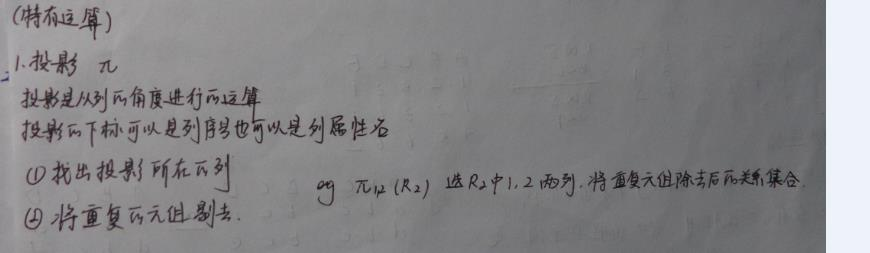 (特有运算)
1.投影 π
投影是从列的角度进行的运算
投影的下标可以是列序号也可以是列属性名
① 找出投影所在的列
② 将重复的元组剔去.
eg π1,2 (R2) 选R2中1,2两列.将重复元组除去后的关系集合.